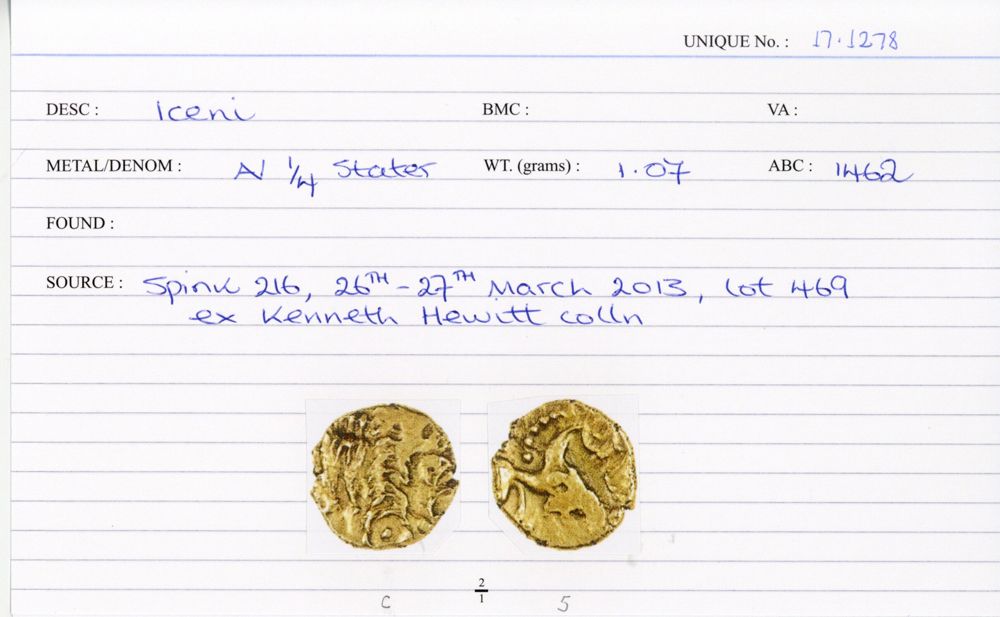 UNIQUE No. : 17.1278
DESC : Iceni BMC : VA :
METAL/DENOM : AV 1/4 Stater WT. (grams) : 1.07 ABC : 1462
FOUND :
SOURCE : Spink 216, 26TH - 27TH March 2013, lot 469
ex Kenneth Hewitt colln
2
1
C 5